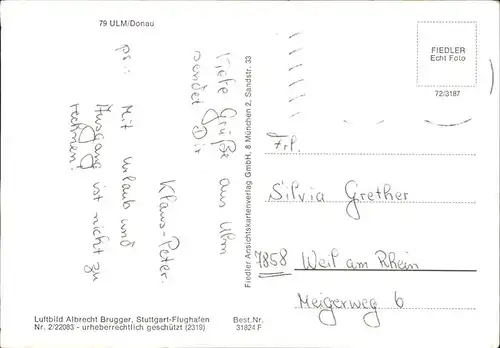 79 ULM/Donau
Viele Grüße aus Ulm
sendet Dir
Klaus-Peter.
ps.: Mit urlaub und
Ausgang ist nicht zu
rechnen!
Fiedler Ansichtskartenverlag GmbH, 8 München 2, Sandstr. 33
FIEDLER
Echt Foto
72/3187
Frl.
Silvia Grether
7858 Weil am Rhein
Meigerweg 6
Luftbild Albrecht Brugger, Stuttgart-Flughafen
Nr. 2/22083 - urheberrechtlich geschützt (2319)
Best.Nr.
31824 F